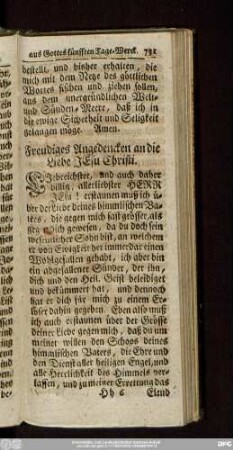 aus Gottes fünfften Tage-Werck. 731
bestellt, und bisher erhalten, die
mich mit dem Netze des göttlichen
Wortes fischen und ziehen sollen,
aus dem unergründlichen Welt-
und Sünden-Meere, daß ich in
die ewige Sicherheit und Seligkeit
gelangen möge. Amen.
Freudiges Angedencken an die
Liebe JEsu Christi.
Liebreichster, und auch daher
billig, allerliebster HERR
JEsu! erstaunen muß ich ü-
ber der Liebe deines himmlischen Va-
ters, die gegen mich fast grösser, als
gegen dich gewesen, da du doch sein
wesentlicher Sohn bist, an welchem
er von Ewigkeit her immerdar einen
Wohlgefallen gehabt, ich aber bin
ein abgefallener Sünder, der ihn,
dich und den Heil. Geist beleidiget
und bekümmert hat, und dennoch
hat er dich für mich zu einem Er-
löser dahin gegeben. Eben also muß
ich auch erstaunen über der Grösse
deiner Liebe gegen mich, daß du um
meinet willen den Schoos deines
himmlischen Vaters, die Ehre und
den Dienst aller heiligen Engel, und
alle Herrlichkeit des Himmels ver-
lassen, und zu meiner Errettung das
Hh 6 Elend